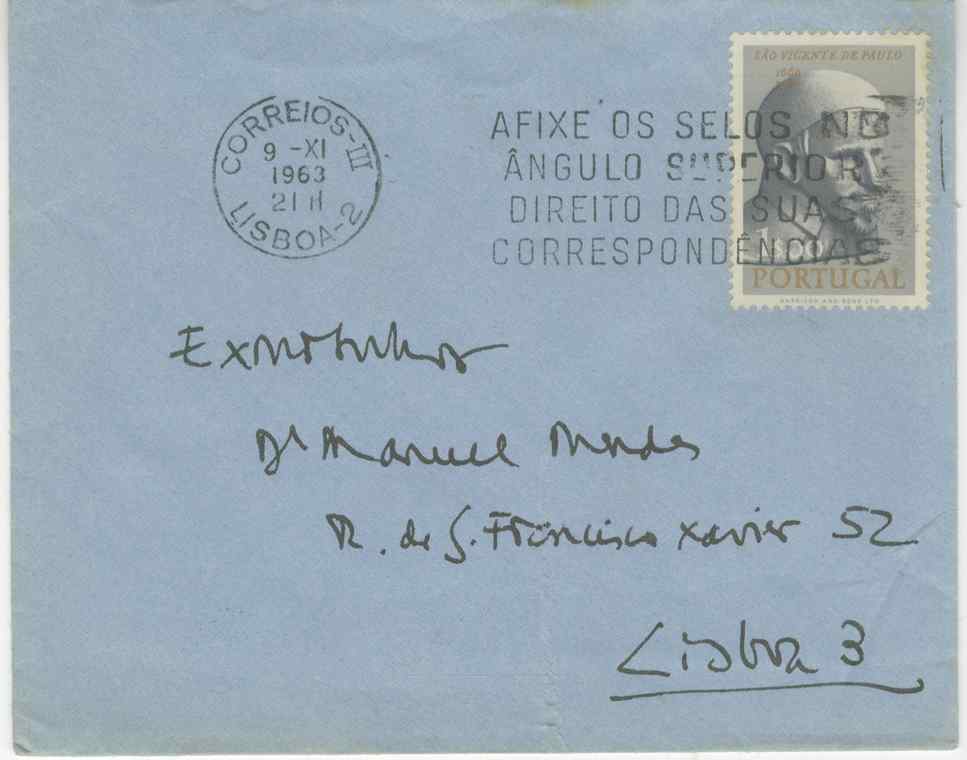 CORREIOS-III
9 -XI
1963
21 H
LISBOA-2
AFIXE OS SELOS NO
ÂNGULO SUPERIOR
DIREITO DAS SUAS
CORRESPONDÊNCIAS
SÃO VICENTE DE PAULO
1660
1$00
PORTUGAL
HARRISON AND SONS LTD
Dr Manuel Mendes
R. de S. Francisco Xavier 52
Lisboa 3